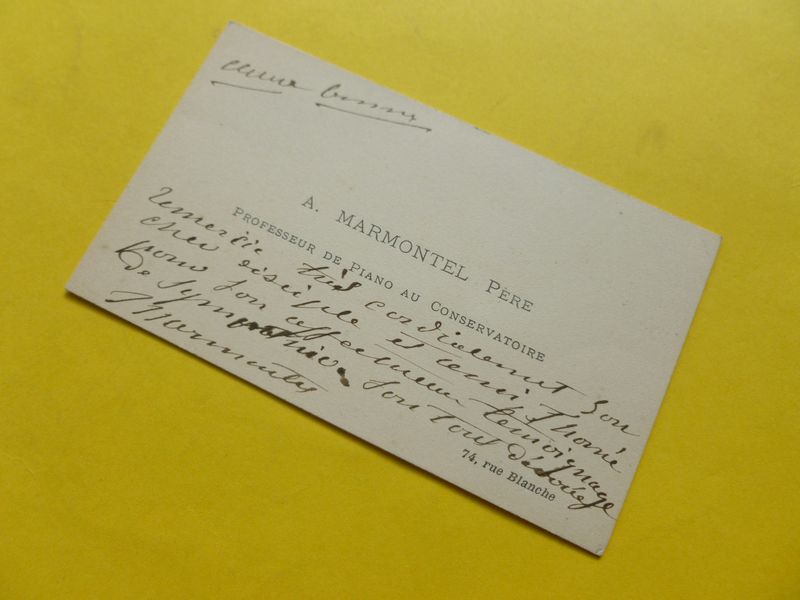 A. MARMONTEL PÈRE
PROFESSEUR DE PIANO AU CONSERVATOIRE
remercie très cordialement son
cher disciple et ami Thomé
pour son affectueux témoignage
de sympathie. Son tout dévoué
Marmontel
74, rue Blanche